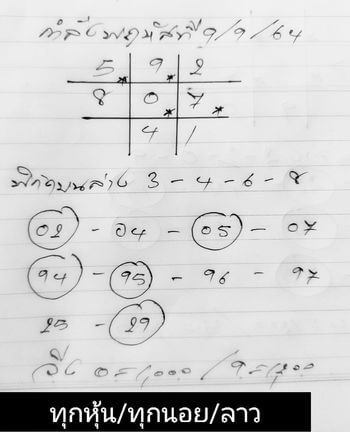 กำลังพฤหัสที่ 9/9/64
5 9 2
8 0 7
4 1
พิกัดบนล่าง 3 - 4 - 6 - 8
02 - 04 - 05 - 07
94 - 95 - 96 - 97
25 - 29
0 = 1,000 / 9 =
ทุกหุ้น/ทุกนอย/ลาว